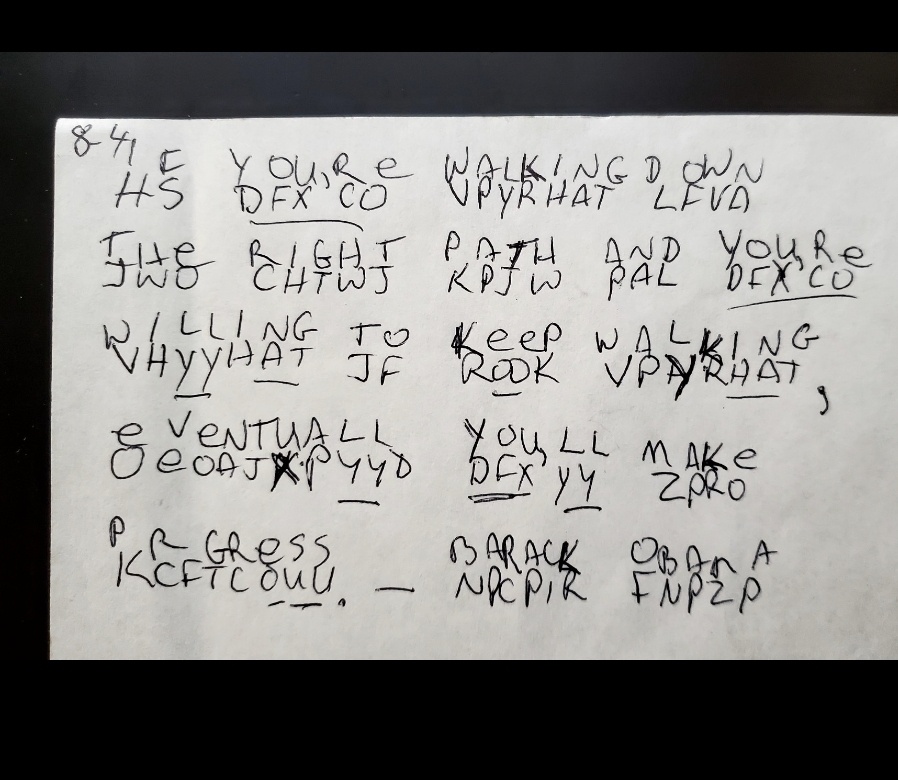 8-4,
E YOU,Re WALKING DOWN
HS DFX CO VPYRHAT LFVA
THe RIGHT PATH AND YOU,Re
JWO CHTWJ KPJW PAL DFX CO
WILLING TO KeeP WALKING
VHYYHAT JF ROOK VPYRHAT,
eVeNTUALL YOU,LL MAKe
OeOAJXPYYD DFX YY ZPRO
P R GReSS BARACK OBAMA
KCFTCOUU. — NPCPIR FNPZP